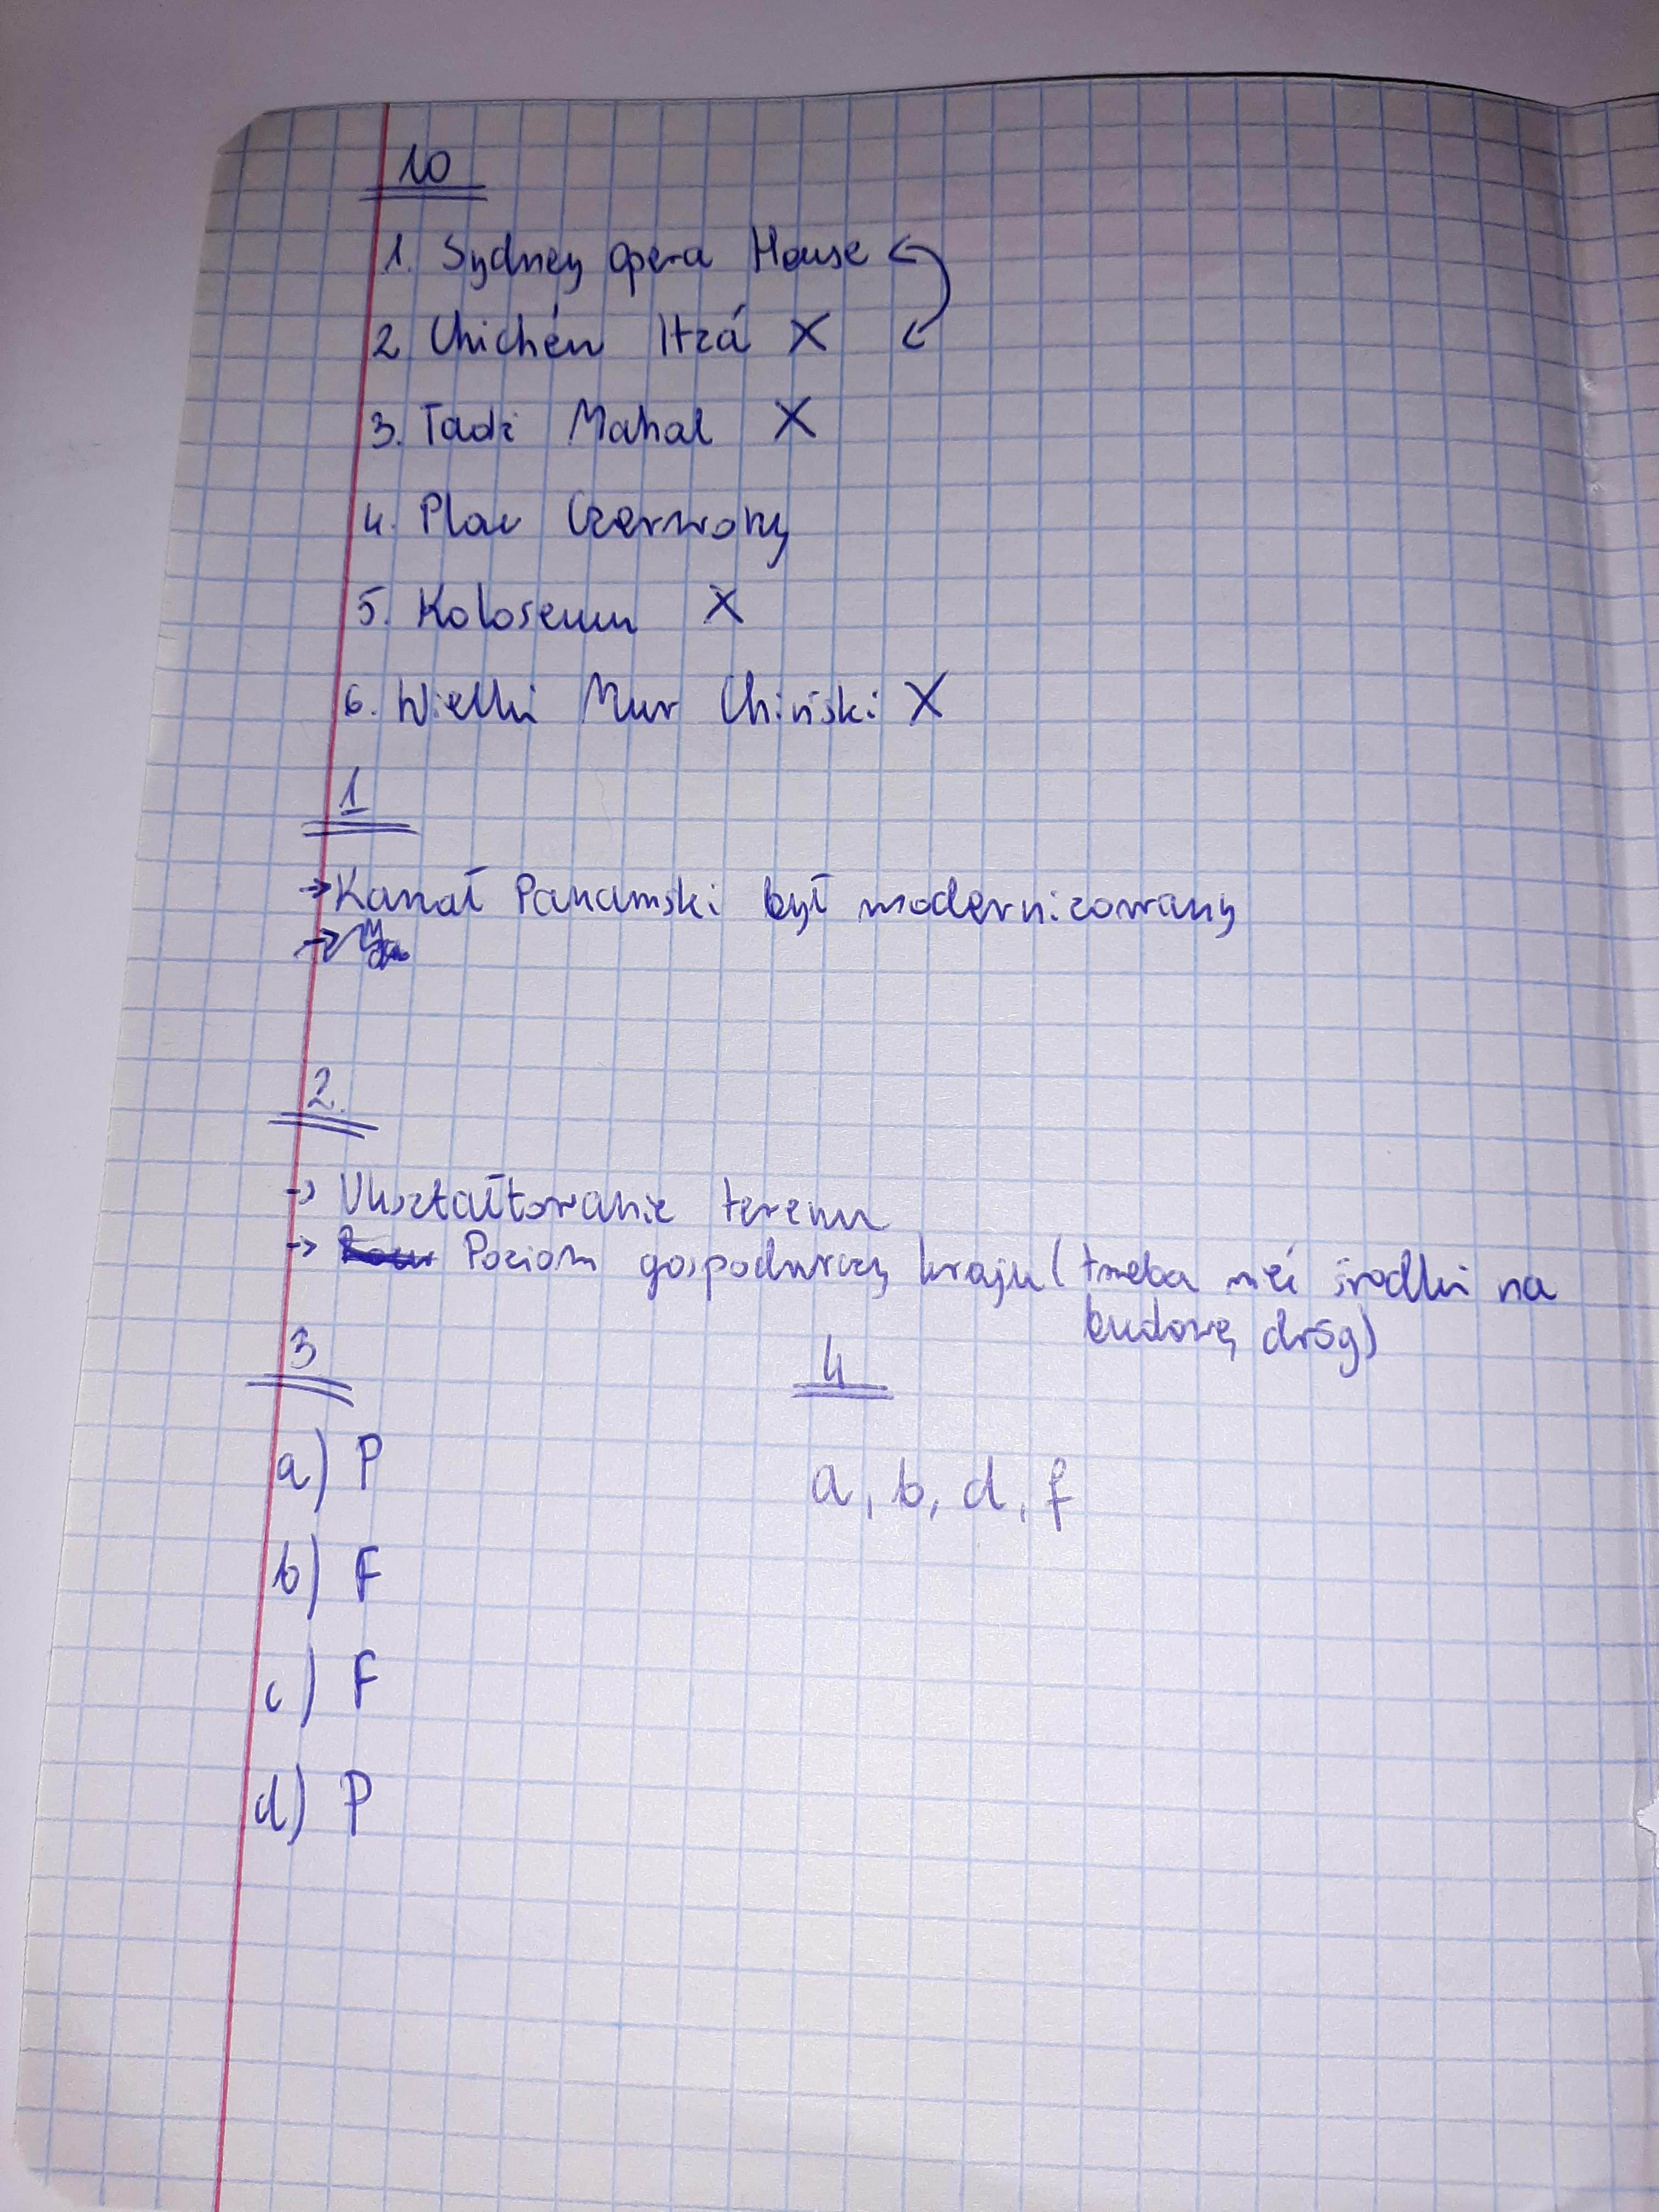 10
1. Sydney opera House
2 Chichén Itzá X
3. Tadż Mahal X
4. Plac Czerwony
5. Koloseum X
6. Wielki Mur Chiński X
1
→ Kanał Panamski był modernizowany
→
2.
→ Ukształtowanie terenu
→ Poziom gospodarczy kraju (trzeba mieć środki na
budowę dróg)
3
4
a) P
a, b, d, f
b) F
c) F
d) P